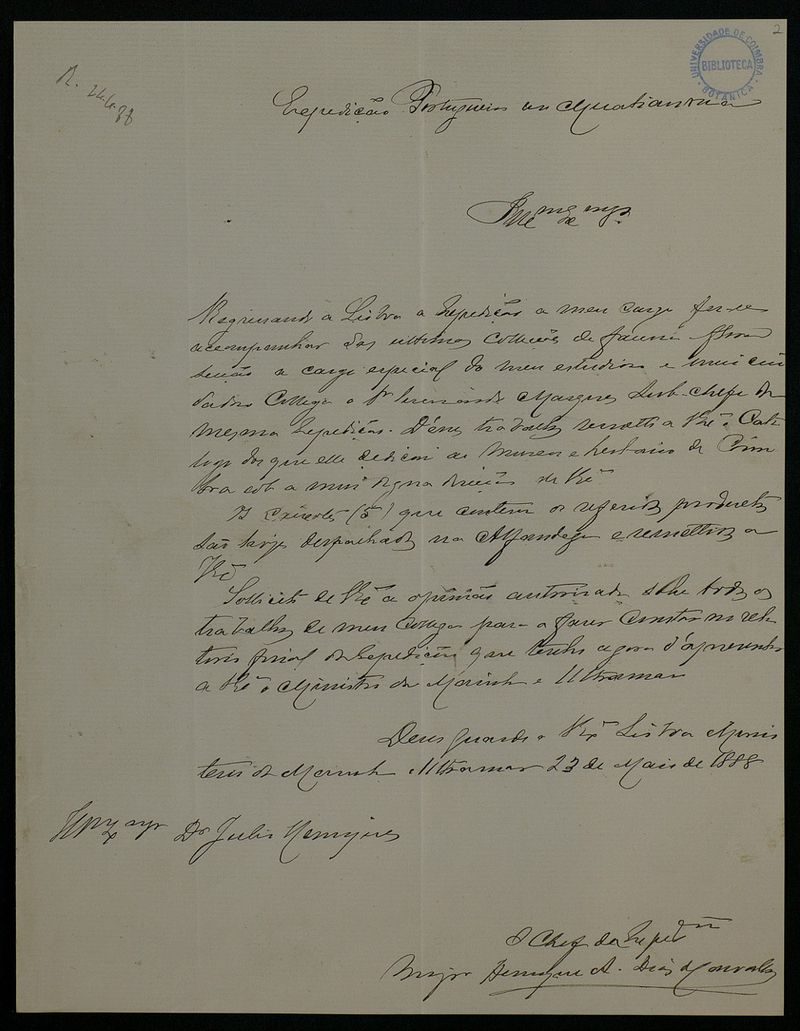 2
UNIVERSIDADE DE COIMBRA
BIBLIOTECA
BOTANICA
R. 24-6-88
Expedição Portugueza ao Muatianvua
Regressando a Lisboa a Expedição a meu cargo fez-se
acompanhar das ultimas collecções de fauna e flora
secção a cargo especial do meu estudioso e
dado collega o Sr Marques Sub-chefe da
mesma Expedição. D'esses trabalhos remetto a VExª o Cata
logo dos que elle dedicou ao Museu de Coim
bra sob a mui digna direcção de VExª
Os caixotes (5) que contem os referidos productos
são hoje despachados na Alfandega e remettidos a
VExª
Sollicito de VExª a opinião autorisada sobre todos os
trabalhos de meu collega para a fazer constar no rela
torio final da Expedição que tenho agora d'apresentar
a SExª o Ministro da Marinha e Ultramar
Deus Guarde a VExª Lisboa Minis
terio da Marinha e Ultramar 23 de Maio de 1888
Dr Julio Henriques
O Chefe da Expedição
Major Henrique A. Dias de Carvalho